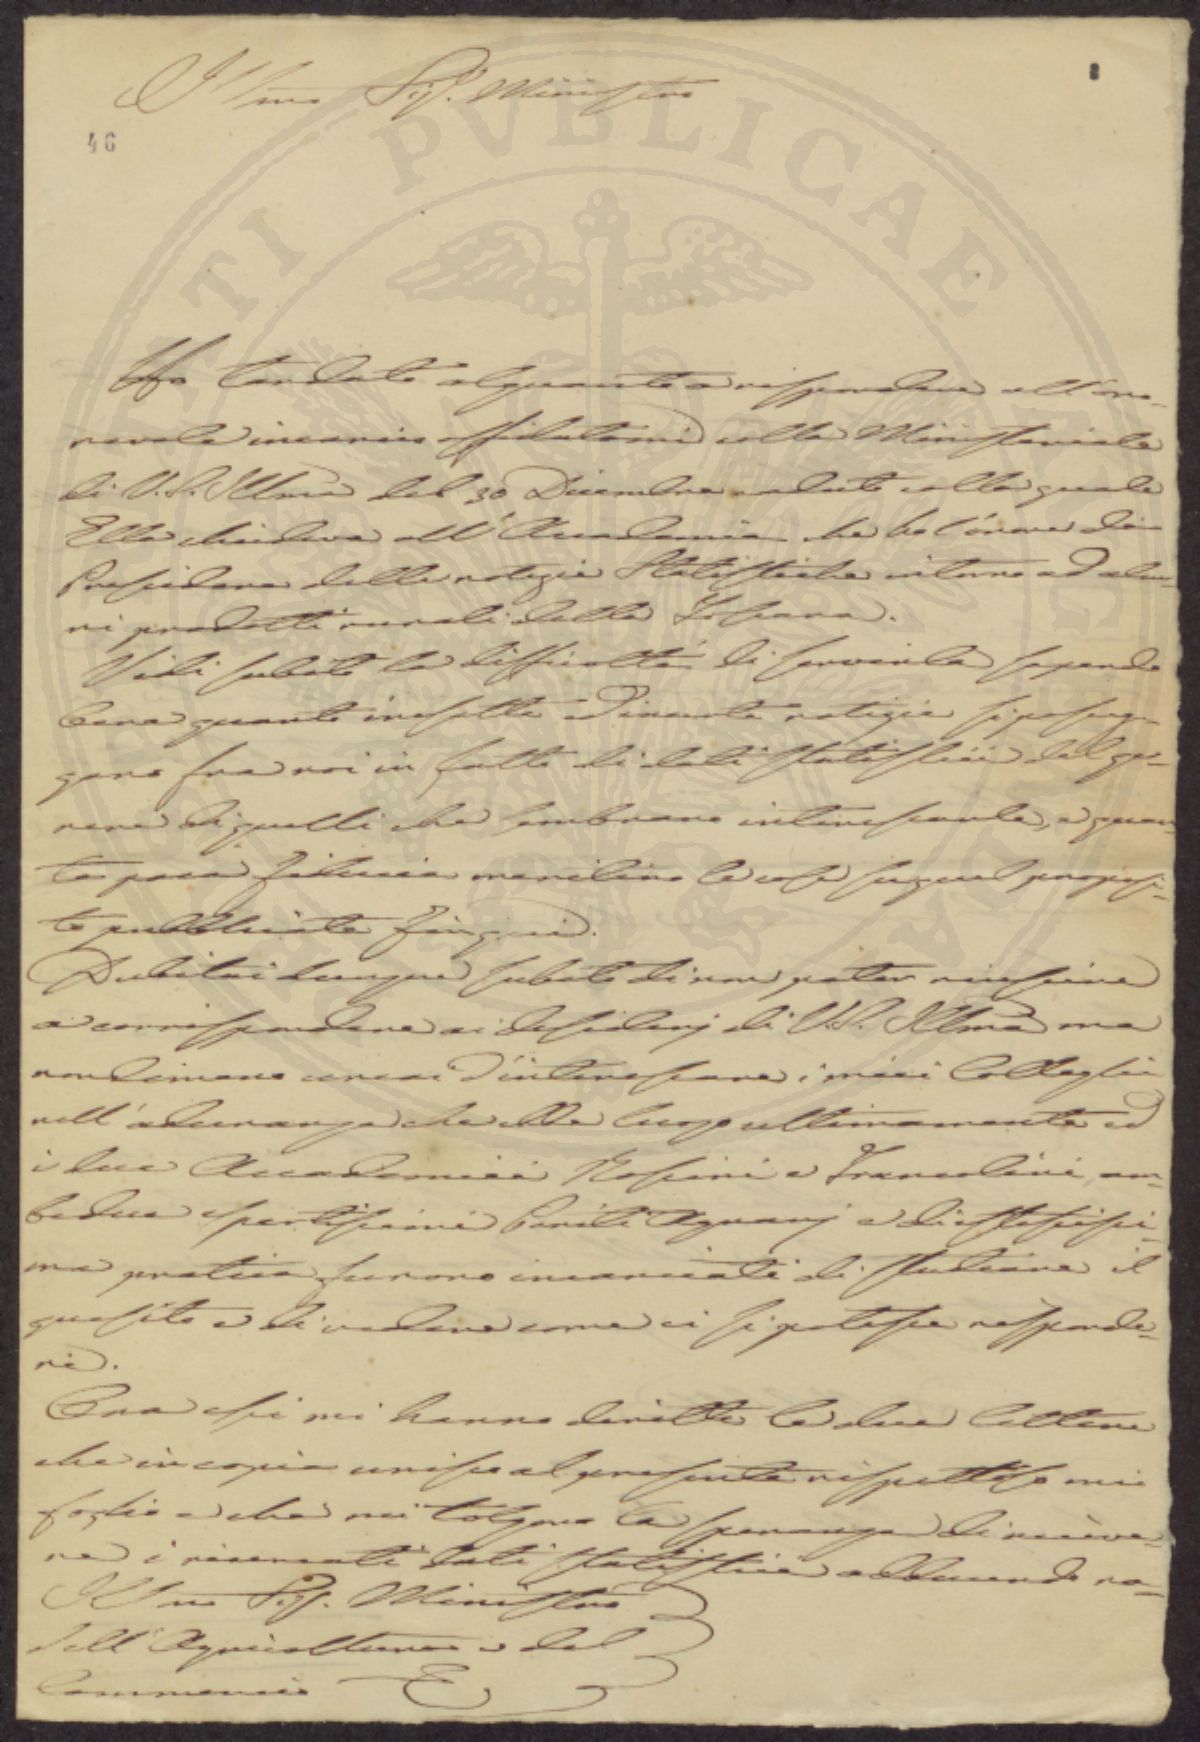 Illmo Sig. Ministro
46
Ho tardato alquanto a rispondere all'ono-
revole incarico affidatomi colla Ministeriale
di V. S. Illma del 30 Dicembre caduto colla quale
Ella chiedeva all'Accademia che ho l'onore di
Presiedere delle notizie Statistiche intorno ad alcu-
ni prodotti rurali della Toscana.
Vidi subito la difficoltà di servirla sapendo
bene quanto inesatte ed incerte notizie si poseg-
gono fra noi in fatto di dati statistici del ge-
nere di quelli che sembrano interessarle, e quan-
to poca fiducia meritino le cose su quel proposi-
to pubblicate fin qui.
Dubitai dunque subito di non poter riuscire
a corrispondere ai desiderj di V. S. Illma ma
nondimeno cercai d'interessare i miei Colleghi
nell'adunanza che ebbe luogo ultimamente ed
i due Accademici Rossini e Francolini, am-
bedue espertissimi Periti Agrarj e di estesissi-
ma pratica furono incaricati di studiare il
quesito e di vedere come ci si potesse risponde-
re.
Ora essi mi hanno dirette le due lettere
che in copia unisco al presente rispettoso mio
foglio e che mi tolgono la speranza di riceve-
re i ricercati dati statistici adducendo ra-
Illmo Sig. Ministro
dell'Agricoltura e del
Commercio
PVBLICAE